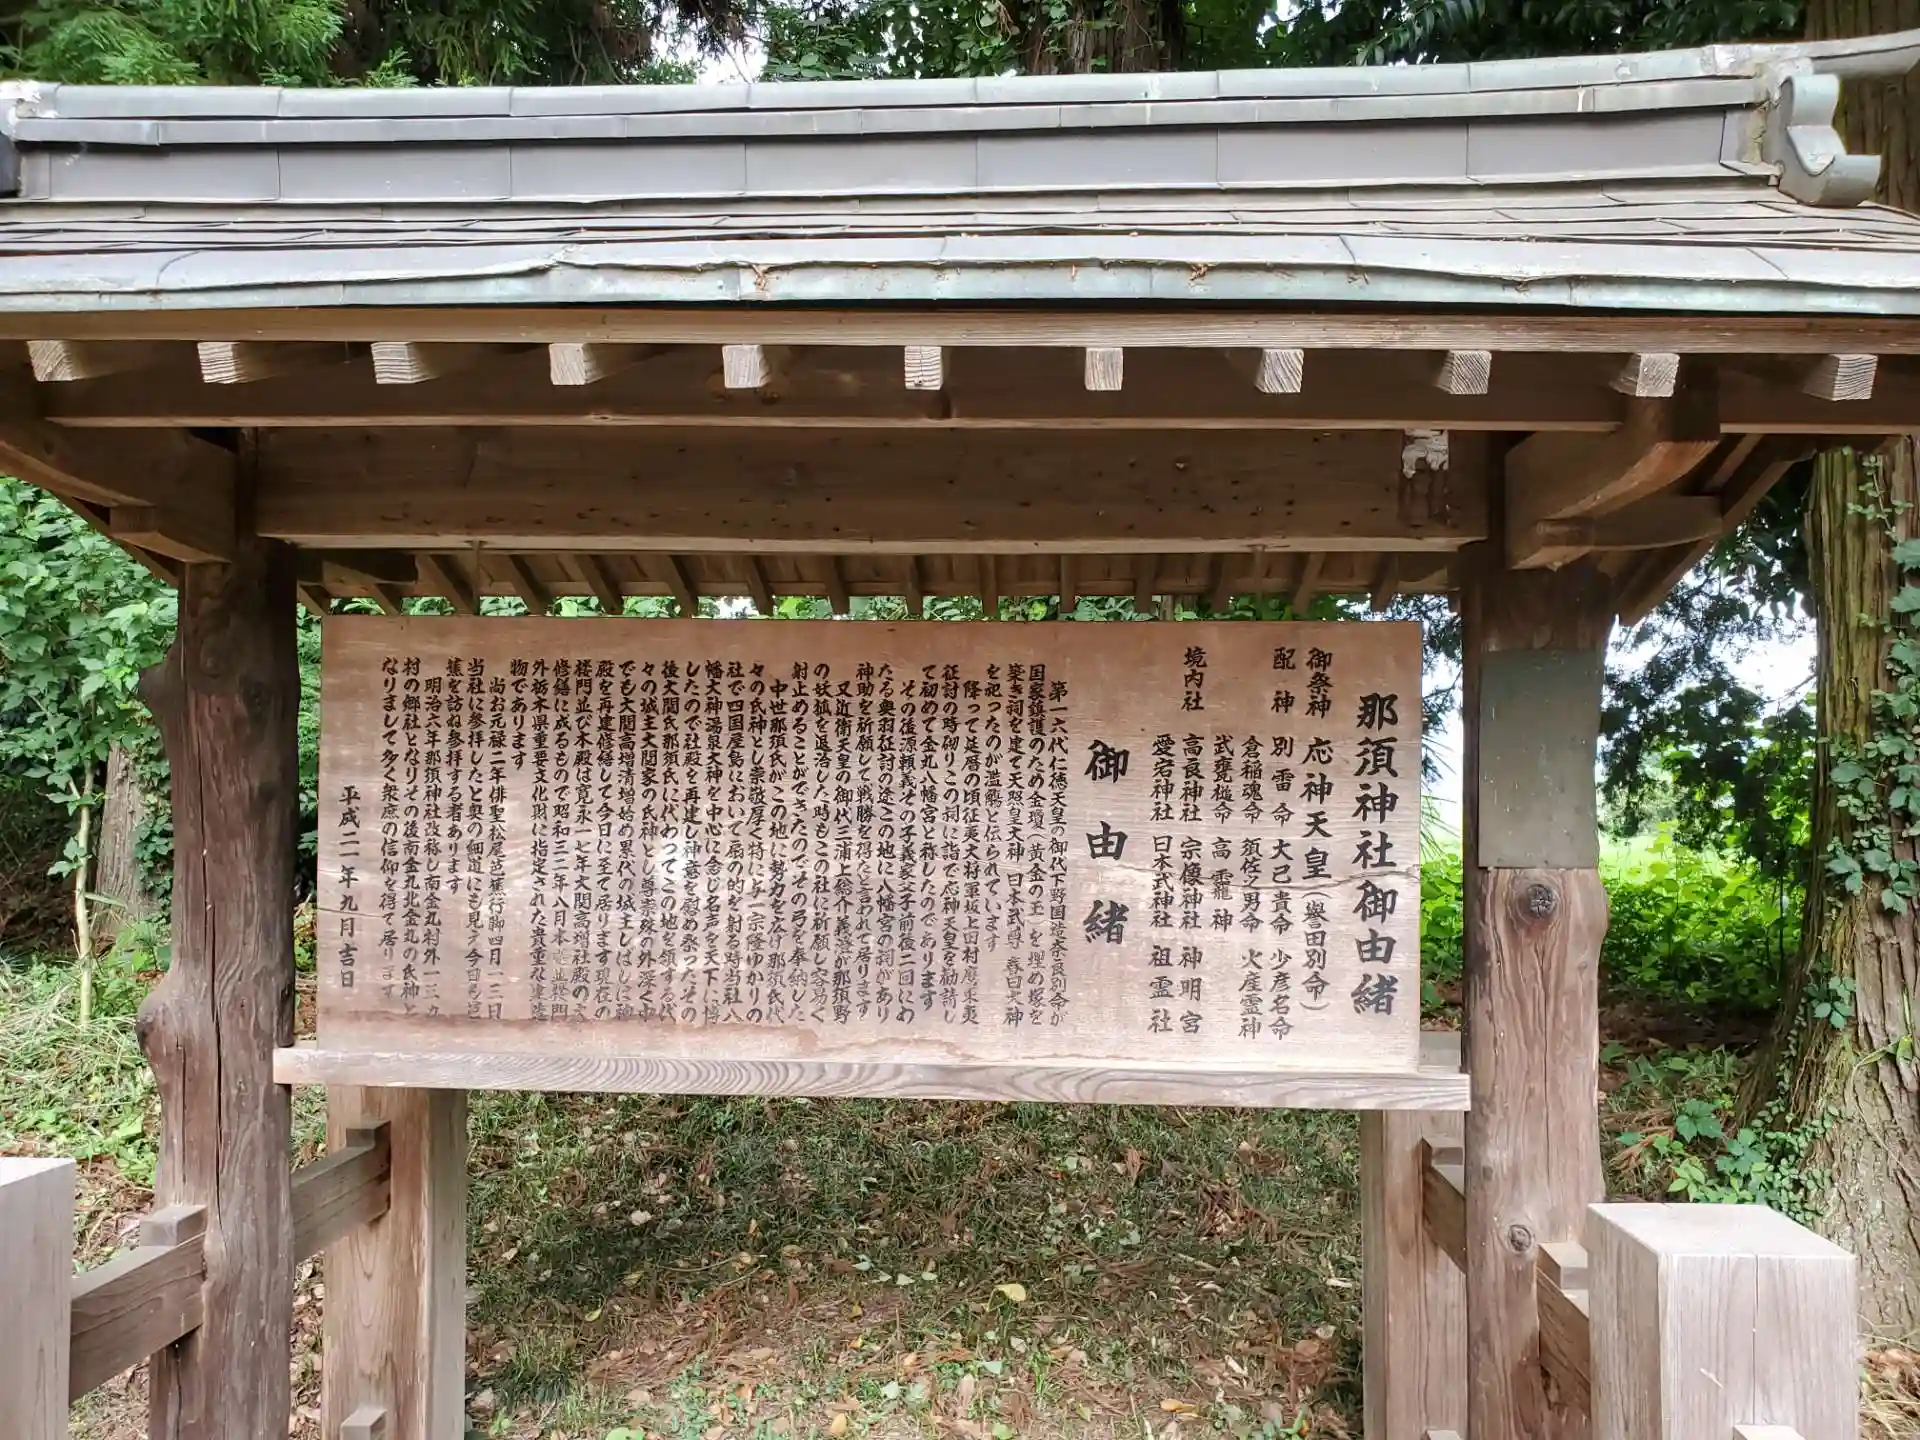 那須神社御由緒
御祭神 応神天皇(誉田別命)
配神 別雷命 大己貴命 少彦名命
倉稲魂命 須佐之男命 火産霊神
武甕槌命 高靇神
境内社 高良神社 宗像神社 神明宮
愛宕神社 日本武神社 祖霊社
御由緒
第一六代仁徳天皇の御代下野国造奈良別命が
国家鎮護のため金瓊(黄金の玉)を埋め塚を
築き祠を建て天照皇大神 日本武尊 春日大神
を祀ったのが濫觴と伝られています
降って延暦の頃征夷大将軍坂上田村麿東夷
征討の時砌りこの祠に詣で応神天皇を勧請し
て初めて金丸八幡宮と称したのであります
その後源頼義その子義家父子前後二回にわ
たる奥羽征討の途この地に八幡宮の祠があり
神助を祈願して戦勝を得たと言われて居ります
又近衛天皇の御代三浦上総介義澄が那須野
の妖狐を退治した時もこの社に祈願し容易く
射止めることができたのでその弓を奉納した
中世那須氏がこの地に勢力を広げ那須氏代
々の氏神とし崇敬厚く特に与一宗隆ゆかりの
社で四国屋島において扇の的を射る時当社八
幡大神湯泉大神を中心に念じ名声を天下に博
したので社殿を再建し神意を慰め奉ったその
後大関氏那須氏に代わってこの地を領する代
々の城主大関家の氏神とし尊崇殊の外深く中
でも大関高増清増始め累代の城主しばしば神
殿を再建修繕して今日に至て居ります現在の
楼門並び本殿は寛永一七年大関高増社殿の大
修繕に成るもので昭和三二年八月本殿並楼門
外栃木県重要文化財に指定された貴重な建造
物であります
尚お元禄二年俳聖松尾芭蕉行脚四月一三日
当社に参拝したと奥の細道にも見ヘ今日も芭
蕉を訪ね参拝する者あります
明治六年那須神社改称し南金丸村外一三ヵ
村の郷社となりその後南金丸北金丸の氏神と
なりまして多く衆庶の信仰を得て居ります
平成二一年九月吉日